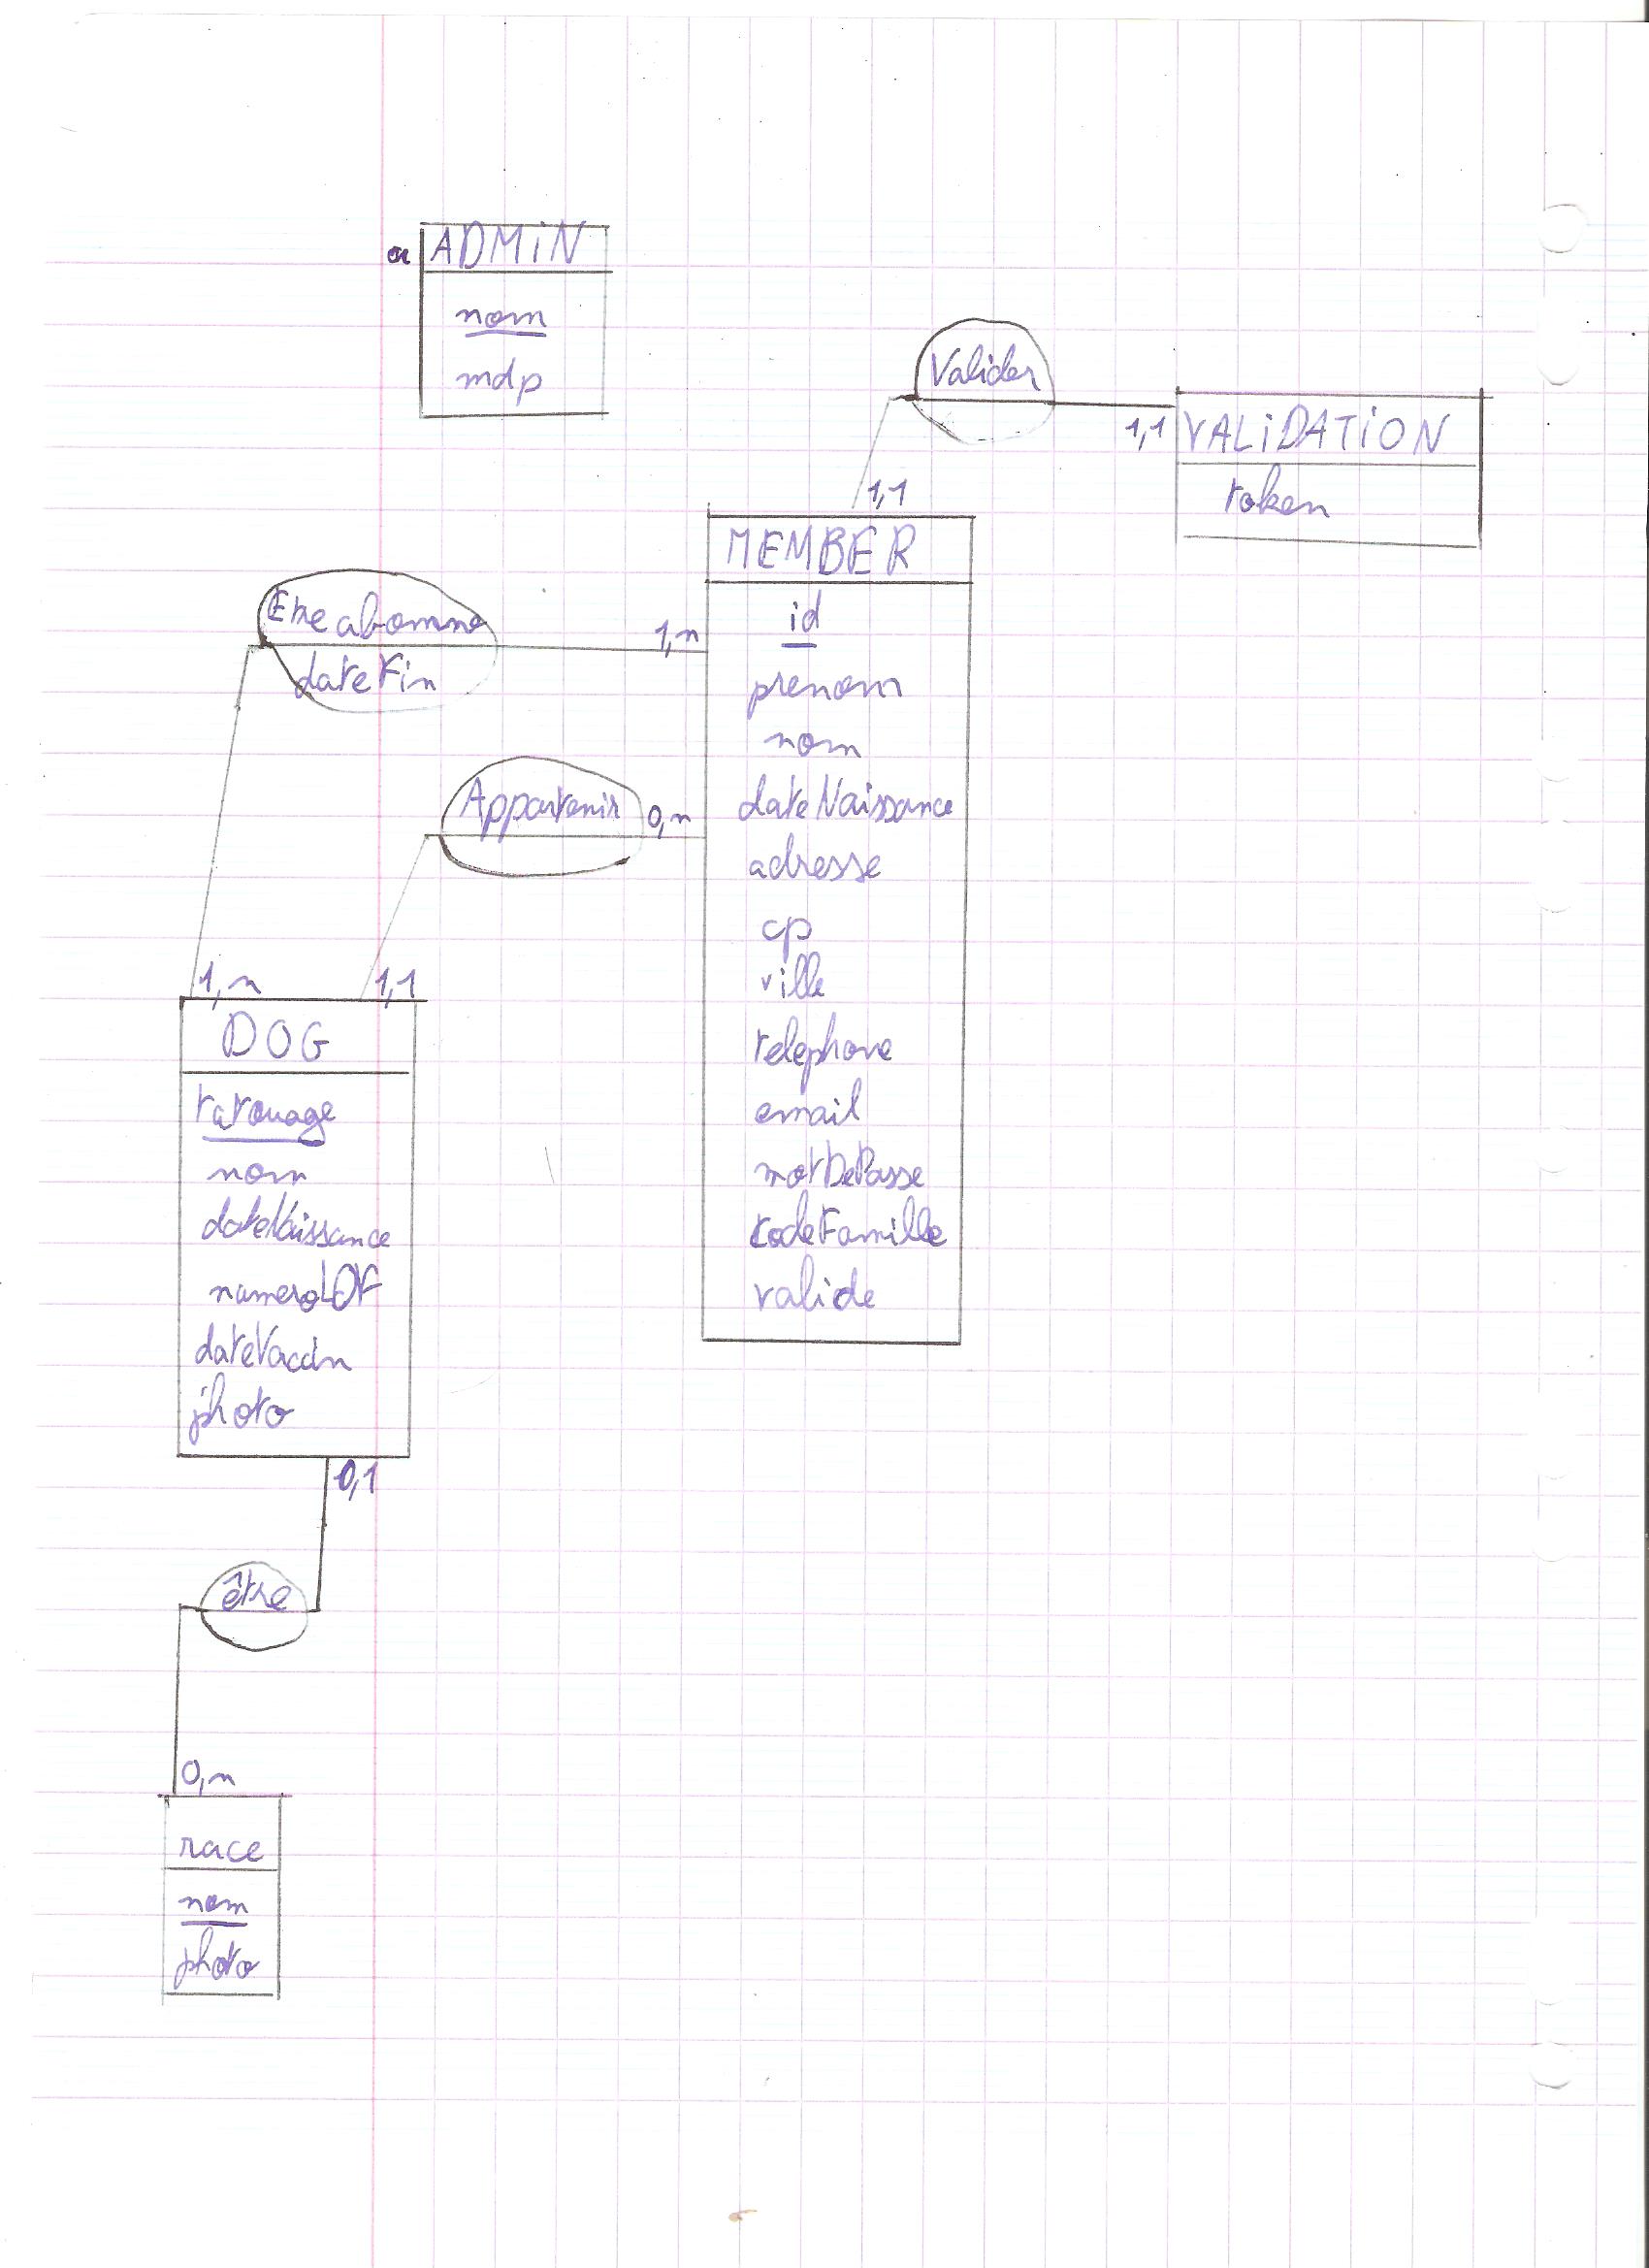 ADMiN
nom
mdp
Valider
1,1
VALiDATiON
token
1,1
MEMBER
id
prenom
nom
dateNaissance
adresse
cp
ville
telephone
email
motDePasse
codeFamille
valide
Etre abonne
dateFin
1,n
Appartenir
0,n
1,n
1,1
DOG
tatouage
nom
dateNaissance
numeroLOF
dateVaccin
photo
0,1
être
0,n
race
nom
photo